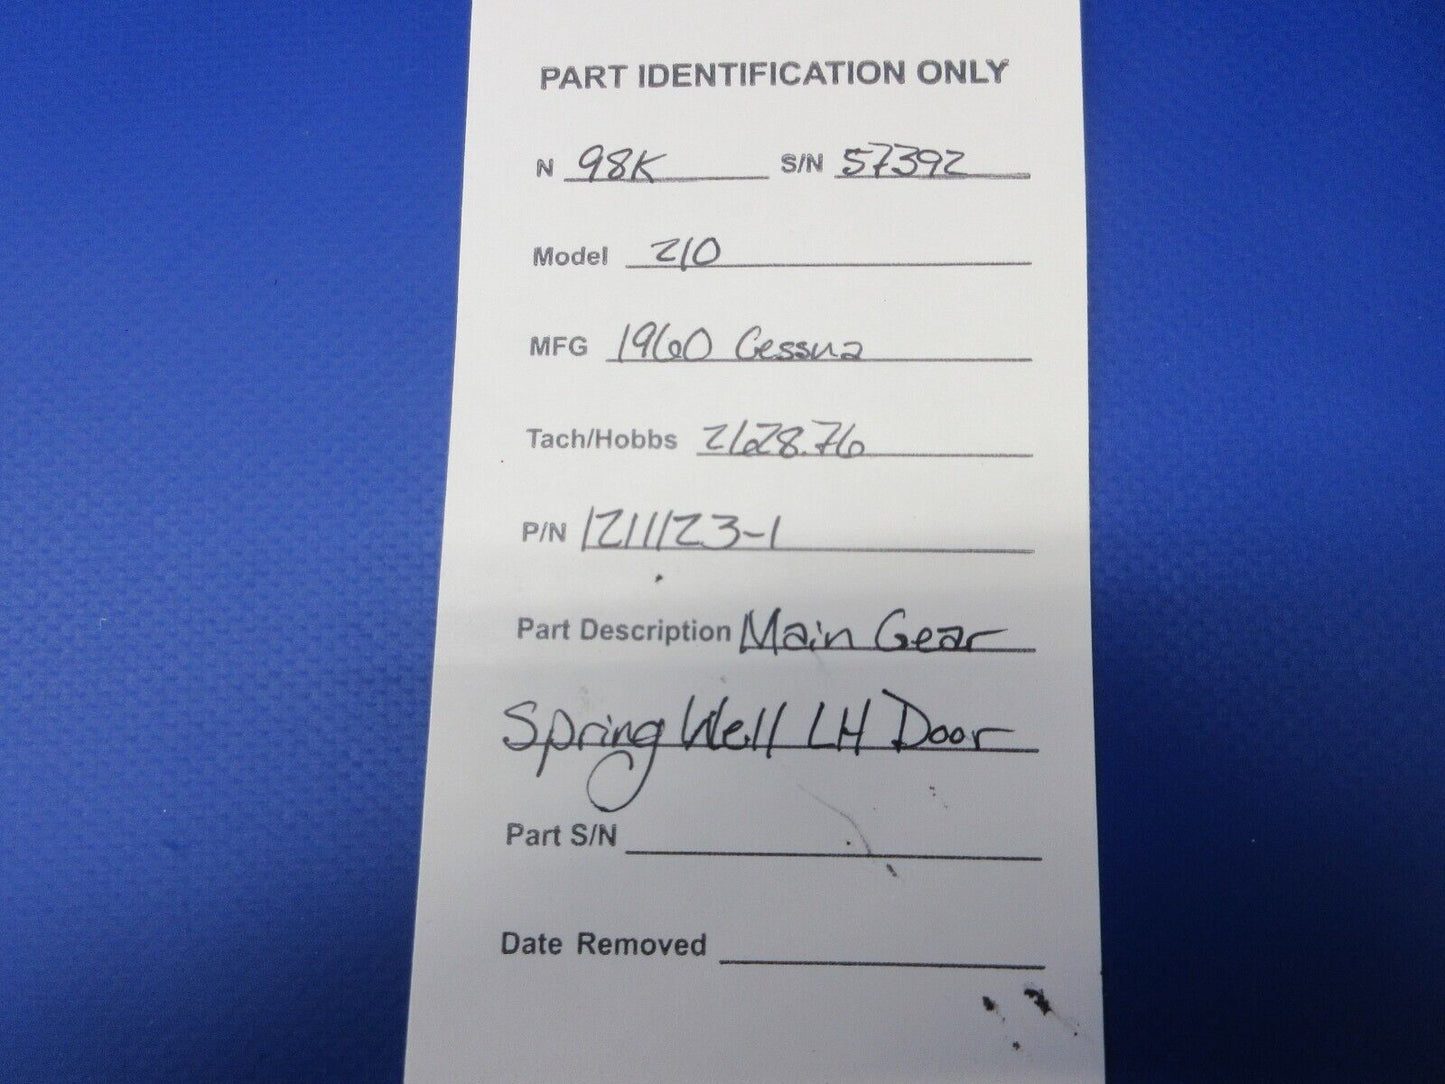 PART IDENTIFICATION ONLY
N 98K S/N 57392
Model 210
MFG 1960 Cessna
Tach/Hobbs 2628.76
P/N 1211123-1
Part Description Main Gear
Spring Well LH Door
Part S/N
Date Removed